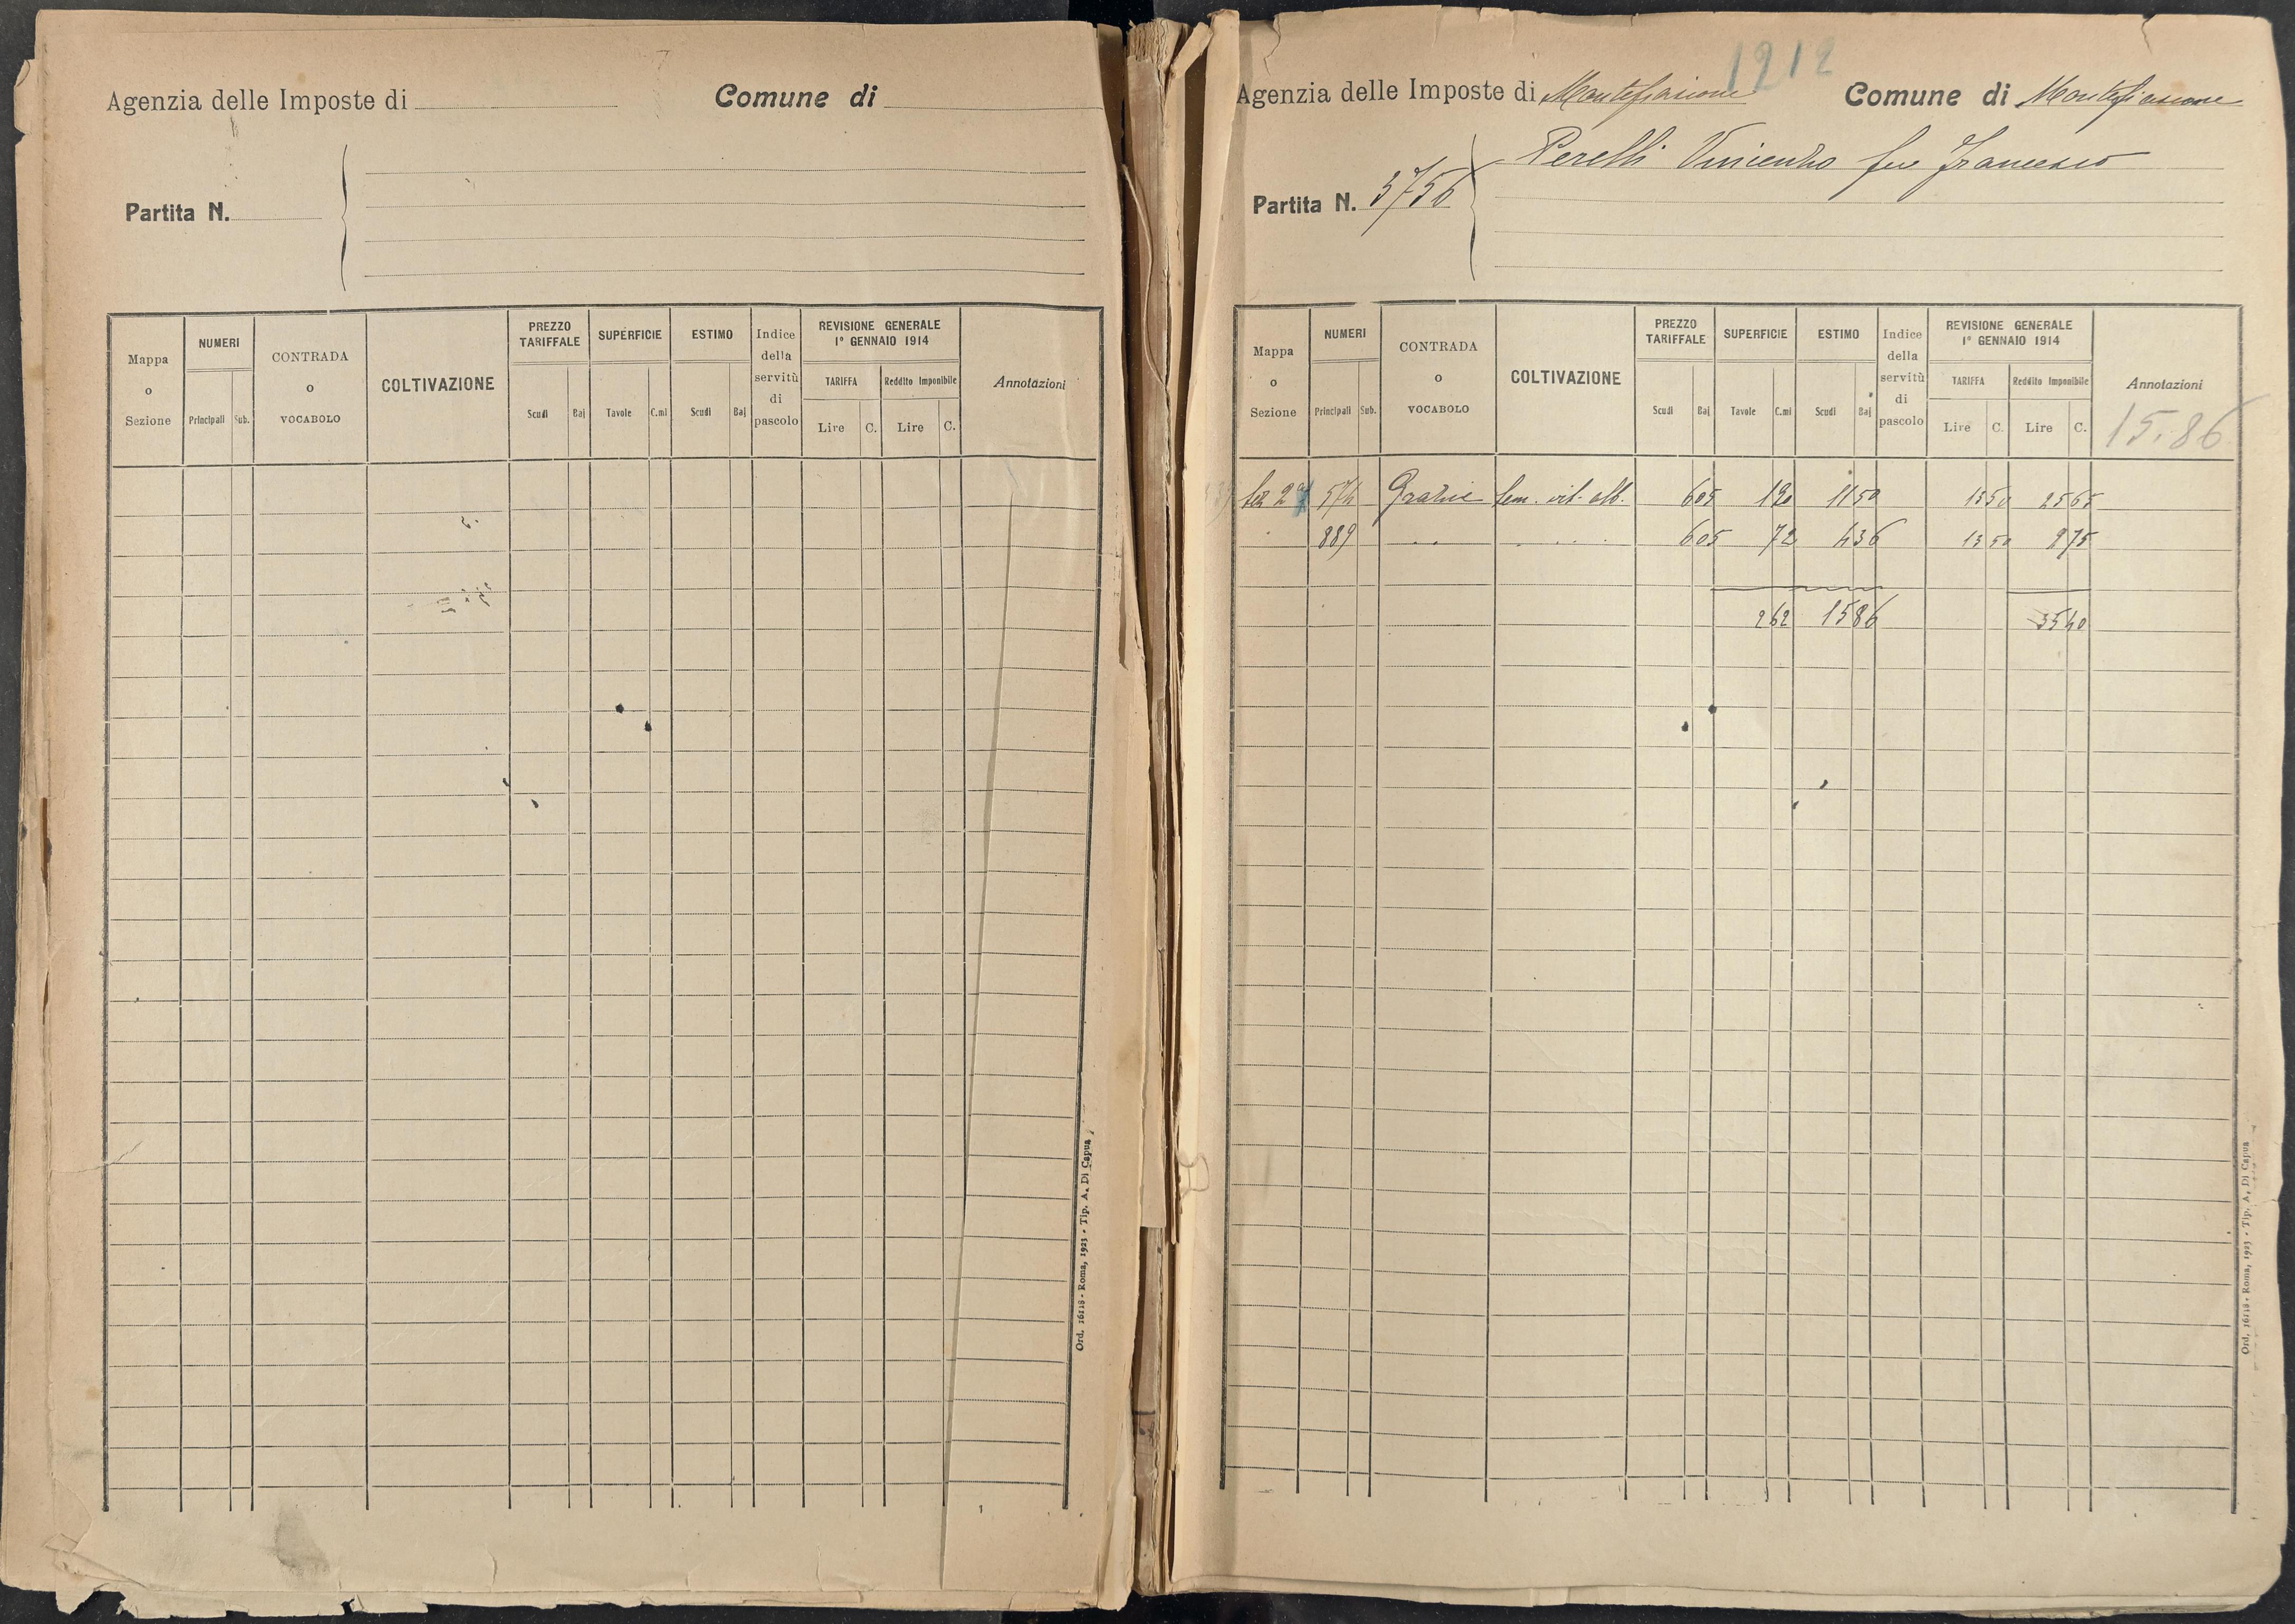 Agenzia delle Imposte di Comune di
Partita N.
Mappa o Sezione
NUMERI
Principali Sub.
CONTRADA o VOCABOLO
COLTIVAZIONE
PREZZO TARIFFALE
Scudi Baj
SUPERFICIE
Tavole C.mi
ESTIMO
Scudi Baj
Indice della servitù di pascolo
REVISIONE GENERALE 1° GENNAIO 1914
TARIFFA Reddito Imponibile
Lire C. Lire C.
Annotazioni
Ord. 16118 - Roma, 1923 - Tip. A. Di Capua
1212
Agenzia delle Imposte di Montefiascone Comune di Montefiascone
Perelli Vincenzo fu Francesco
Partita N. 3756
Mappa o Sezione
NUMERI
Principali Sub.
CONTRADA o VOCABOLO
COLTIVAZIONE
PREZZO TARIFFALE
Scudi Baj
SUPERFICIE
Tavole C.mi
ESTIMO
Scudi Baj
Indice della servitù di pascolo
REVISIONE GENERALE 1° GENNAIO 1914
TARIFFA Reddito Imponibile
Lire C. Lire C.
Annotazioni
15.86
Sez 2ª 574 Grazie Sem. vit. alb. 605 190 1150 1350 2565
889 605 72 436 1350 975
262 1586 3540
Ord. 16118 - Roma, 1923 - Tip. A. Di Capua